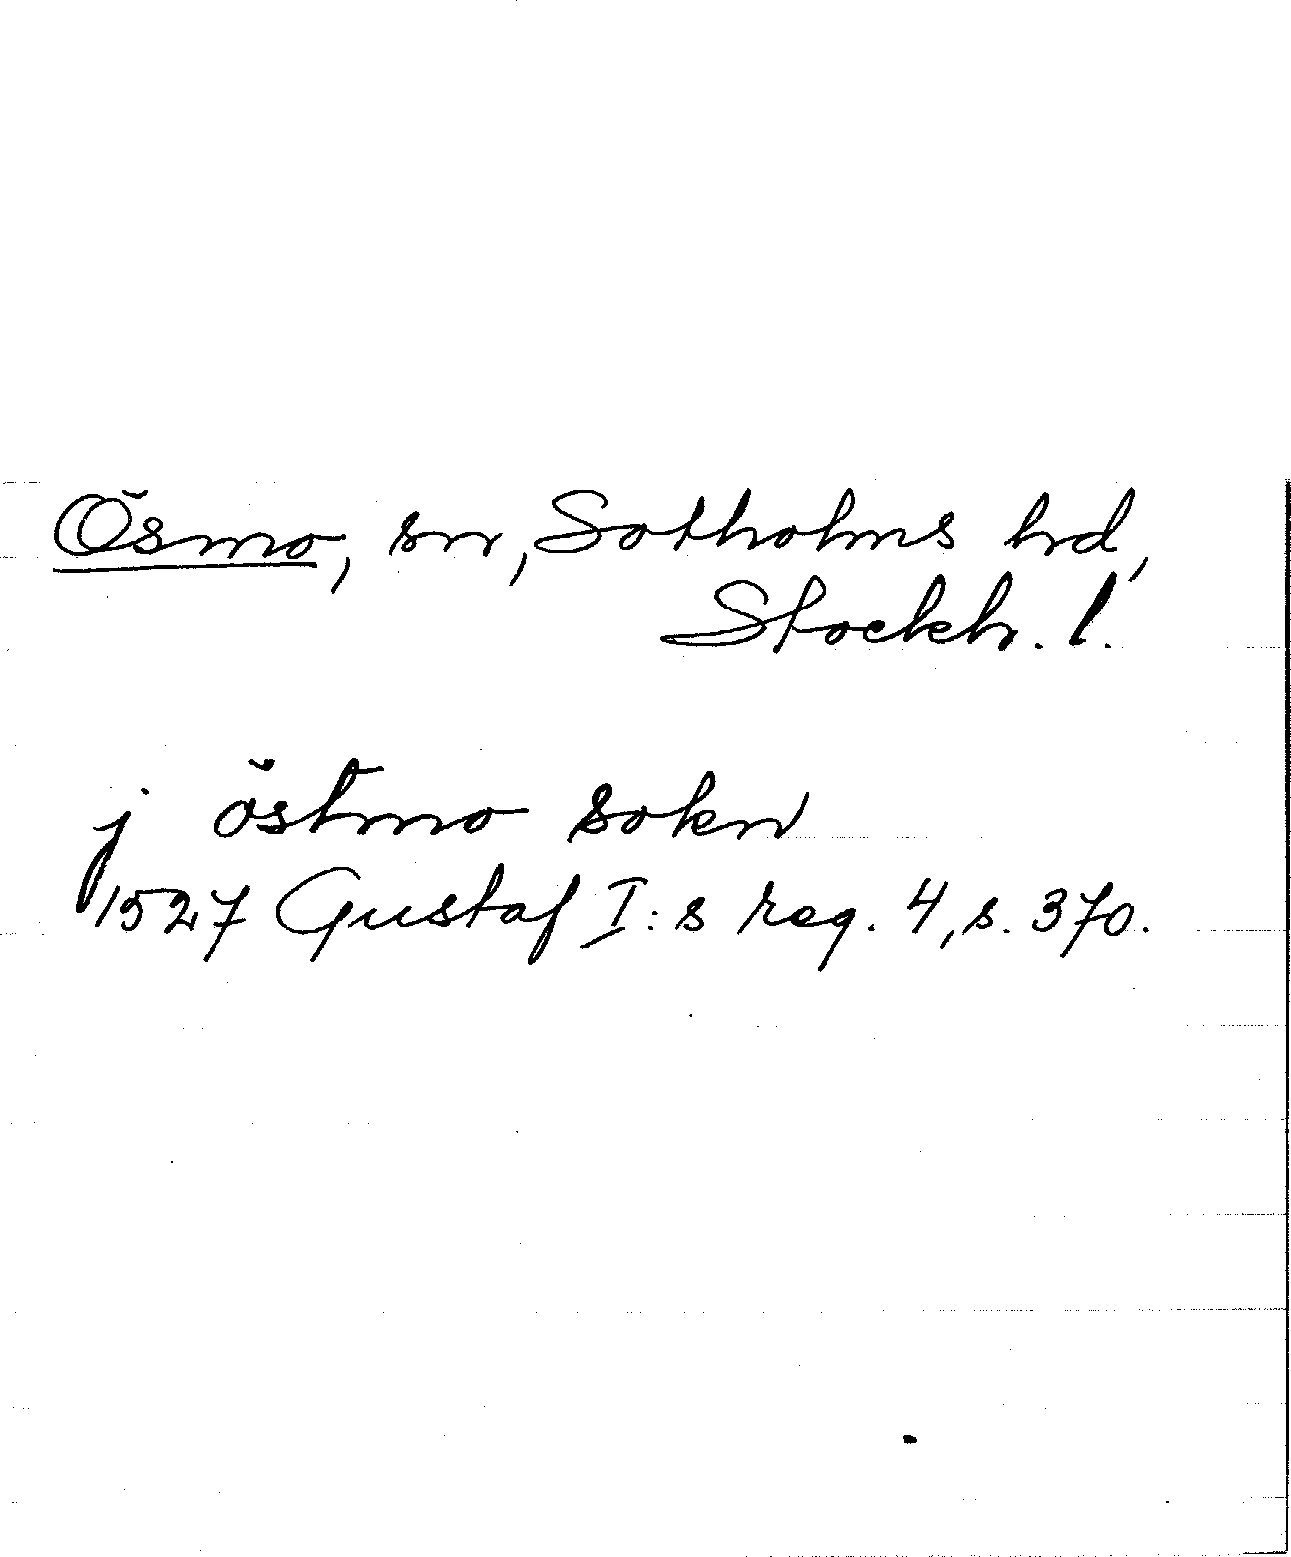 Ösmo, sn, Sotholms hd,
Stockh. l.
j östmo sokn
1527 Gustaf I:s reg. 4, s. 370.